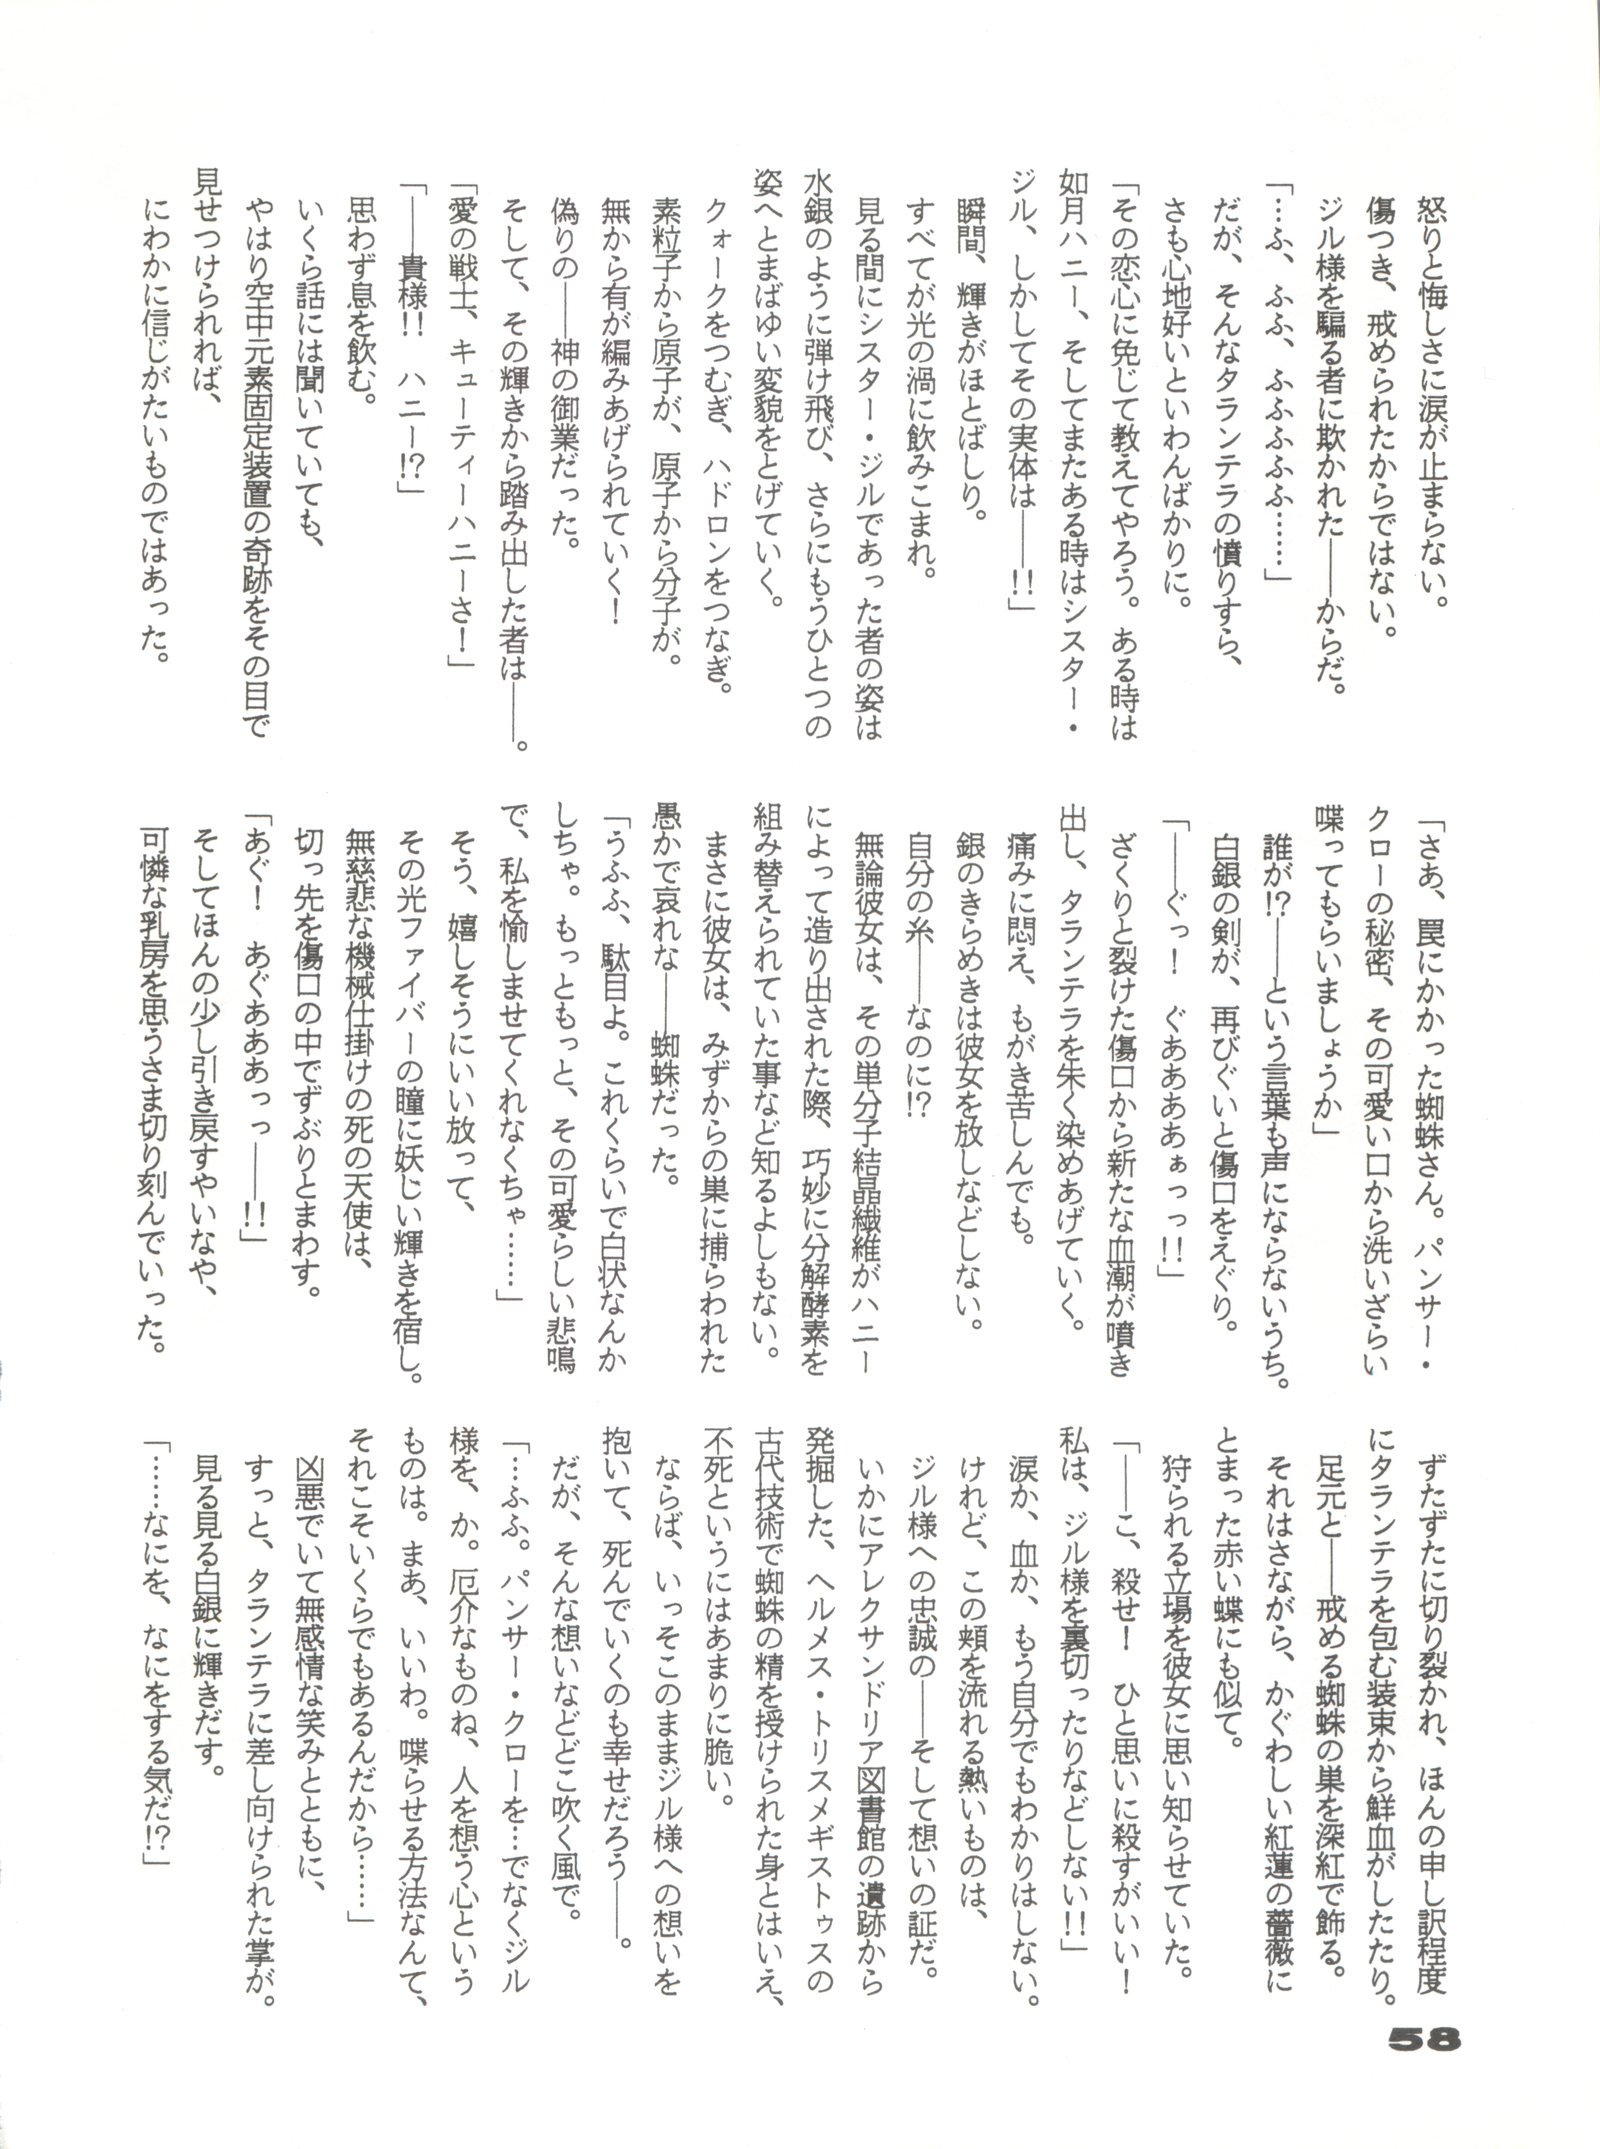 怒りと悔しさに涙が止まらない。
傷つき、戒められたからではない。
ジル様を騙る者に欺かれた――からだ。
「…ふ、ふふ、ふふふふふ……」
だが、そんなタランテラの憤りすら、
さも心地好いといわんばかりに。
「その恋心に免じて教えてやろう。ある時は
如月ハニー、そしてまたある時はシスター・
ジル、しかしてその実体は――!!」
瞬間、輝きがほとばしり。
すべてが光の渦に飲みこまれ。
見る間にシスター・ジルであった者の姿は
水銀のように弾け飛び、さらにもうひとつの
姿へとまばゆい変貌をとげていく。
クォークをつむぎ、ハドロンをつなぎ。
素粒子から原子が、原子から分子が。
無から有が編みあげられていく!
偽りの――神の御業だった。
そして、その輝きから踏み出した者は――。
「愛の戦士、キューティーハニーさ!」
「――貴様!! ハニー!?」
思わず息を飲む。
いくら話には聞いていても、
やはり空中元素固定装置の奇跡をその目で
見せつけられれば、
にわかに信じがたいものではあった。
「さあ、罠にかかった蜘蛛さん。パンサー・
クローの秘密、その可愛い口から洗いざらい
喋ってもらいましょうか」
誰が!?――という言葉も声にならないうち。
白銀の剣が、再びぐいと傷口をえぐり。
「――ぐっ! ぐああああぁっっ!!」
ざくりと裂けた傷口から新たな血潮が噴き
出し、タランテラを朱く染めあげていく。
痛みに悶え、もがき苦しんでも。
銀のきらめきは彼女を放しなどしない。
自分の糸――なのに!?
無論彼女は、その単分子結晶繊維がハニー
によって造り出された際、巧妙に分解酵素を
組み替えられていた事など知るよしもない。
まさに彼女は、みずからの巣に捕らわれた
愚かで哀れな――蜘蛛だった。
「うふふ、駄目よ。これくらいで白状なんか
しちゃ。もっともっと、その可愛らしい悲鳴
で、私を愉しませてくれなくちゃ……」
そう、嬉しそうにいい放って、
その光ファイバーの瞳に妖じい輝きを宿し。
無慈悲な機械仕掛けの死の天使は、
切っ先を傷口の中でずぶりとまわす。
「あぐ! あぐあああっっ――!!」
そしてほんの少し引き戻すやいなや、
可憐な乳房を思うさま切り刻んでいった。
ずたずたに切り裂かれ、ほんの申し訳程度
にタランテラを包む装束から鮮血がしたたり。
足元と――戒める蜘蛛の巣を深紅で飾る。
それはさながら、かぐわしい紅蓮の薔薇に
とまった赤い蝶にも似て。
狩られる立場を彼女に思い知らせていた。
「――こ、殺せ! ひと思いに殺すがいい!
私は、ジル様を裏切ったりなどしない!!」
涙か、血か、もう自分でもわかりはしない。
けれど、この頬を流れる熱いものは、
ジル様への忠誠の――そして想いの証だ。
いかにアレクサンドリア図書館の遺跡から
発掘した、ヘルメス・トリスメギストゥスの
古代技術で蜘蛛の精を授けられた身とはいえ、
不死というにはあまりに脆い。
ならば、いっそこのままジル様への想いを
抱いて、死んでいくのも幸せだろう――。
だが、そんな想いなどどこ吹く風で。
「…ふふ。パンサー・クローを…でなくジル
様を、か。厄介なものね、人を想う心という
ものは。まあ、いいわ。喋らせる方法なんて、
それこそいくらでもあるんだから……」
凶悪でいて無感情な笑みとともに、
すっと、タランテラに差し向けられた掌が。
見る見る白銀に輝きだす。
「……なにを、なにをする気だ!?」
58